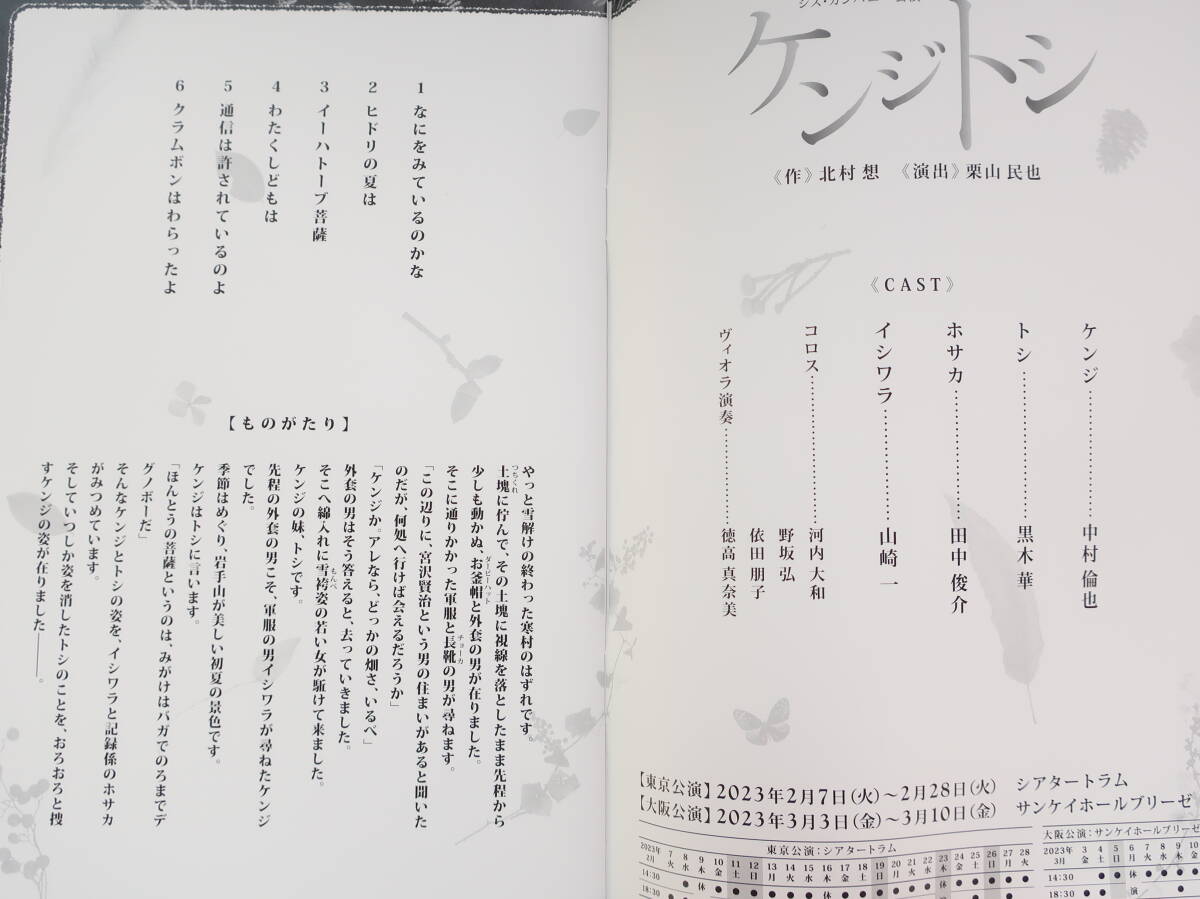 シス・カンパニー公演
ケンジトシ
《作》北村 想 《演出》栗山 民也
《CAST》
ケンジ……………中村 倫也
トシ……………黒木 華
ホサカ……………田中 俊介
イシワラ……………山崎 一
コロス……………河内 大和
野坂 弘
依田 朋子
ヴィオラ演奏……………徳高 真奈美
【東京公演】2023年2月7日(火)〜2月28日(火) シアタートラム
【大阪公演】2023年3月3日(金)〜3月10日(金) サンケイホールブリーゼ
東京公演:シアタートラム
2023年 2月 7 火 8 水 9 木 10 金 11 土 12 日 13 月 14 火 15 水 16 木 17 金 18 土 19 日 20 月 21 火 22 水 23 木 24 金 25 土 26 日 27 月 28 火
14:30
18:30
大阪公演:サンケイホールブリーゼ
2023年 3月 3 金 4 土 5 日 6 月 7 火 8 水 9 木 10 金
14:30
18:30
1 なにをみているのかな
2 ヒドリの夏は
3 イーハトーブ菩薩
4 わたくしどもは
5 通信は許されているのよ
6 クラムボンはわらったよ
【ものがたり】
やっと雪解けの終わった寒村のはずれです。
土塊に佇んで、その土塊に視線を落としたまま先程から
つちくれ
少しも動かぬ、お釜帽と外套の男が在りました。
ダービーハット
そこに通りかかった軍服と長靴の男が尋ねます。
チョーカ
「この辺りに、宮沢賢治という男の住まいがあると聞いた
のだが、何処へ行けば会えるだろうか」
「ケンジか。アレなら、どっかの畑さ、いるべ」
外套の男はそう答えると、去っていきました。
そこへ綿入れに雪袴姿の若い女が駈けて来ました。
もんぺ
ケンジの妹、トシです。
先程の外套の男こそ、軍服の男イシワラが尋ねたケンジ
でした。
季節はめぐり、岩手山が美しい初夏の景色です。
ケンジはトシに言います。
「ほんとうの菩薩というのは、みがけはバガでのろまでデ
グノボーだ」
そんなケンジとトシの姿を、イシワラと記録係のホサカ
がみつめています。
そしていつしか姿を消したトシのことを、おろおろと捜
すケンジの姿が在りました――。